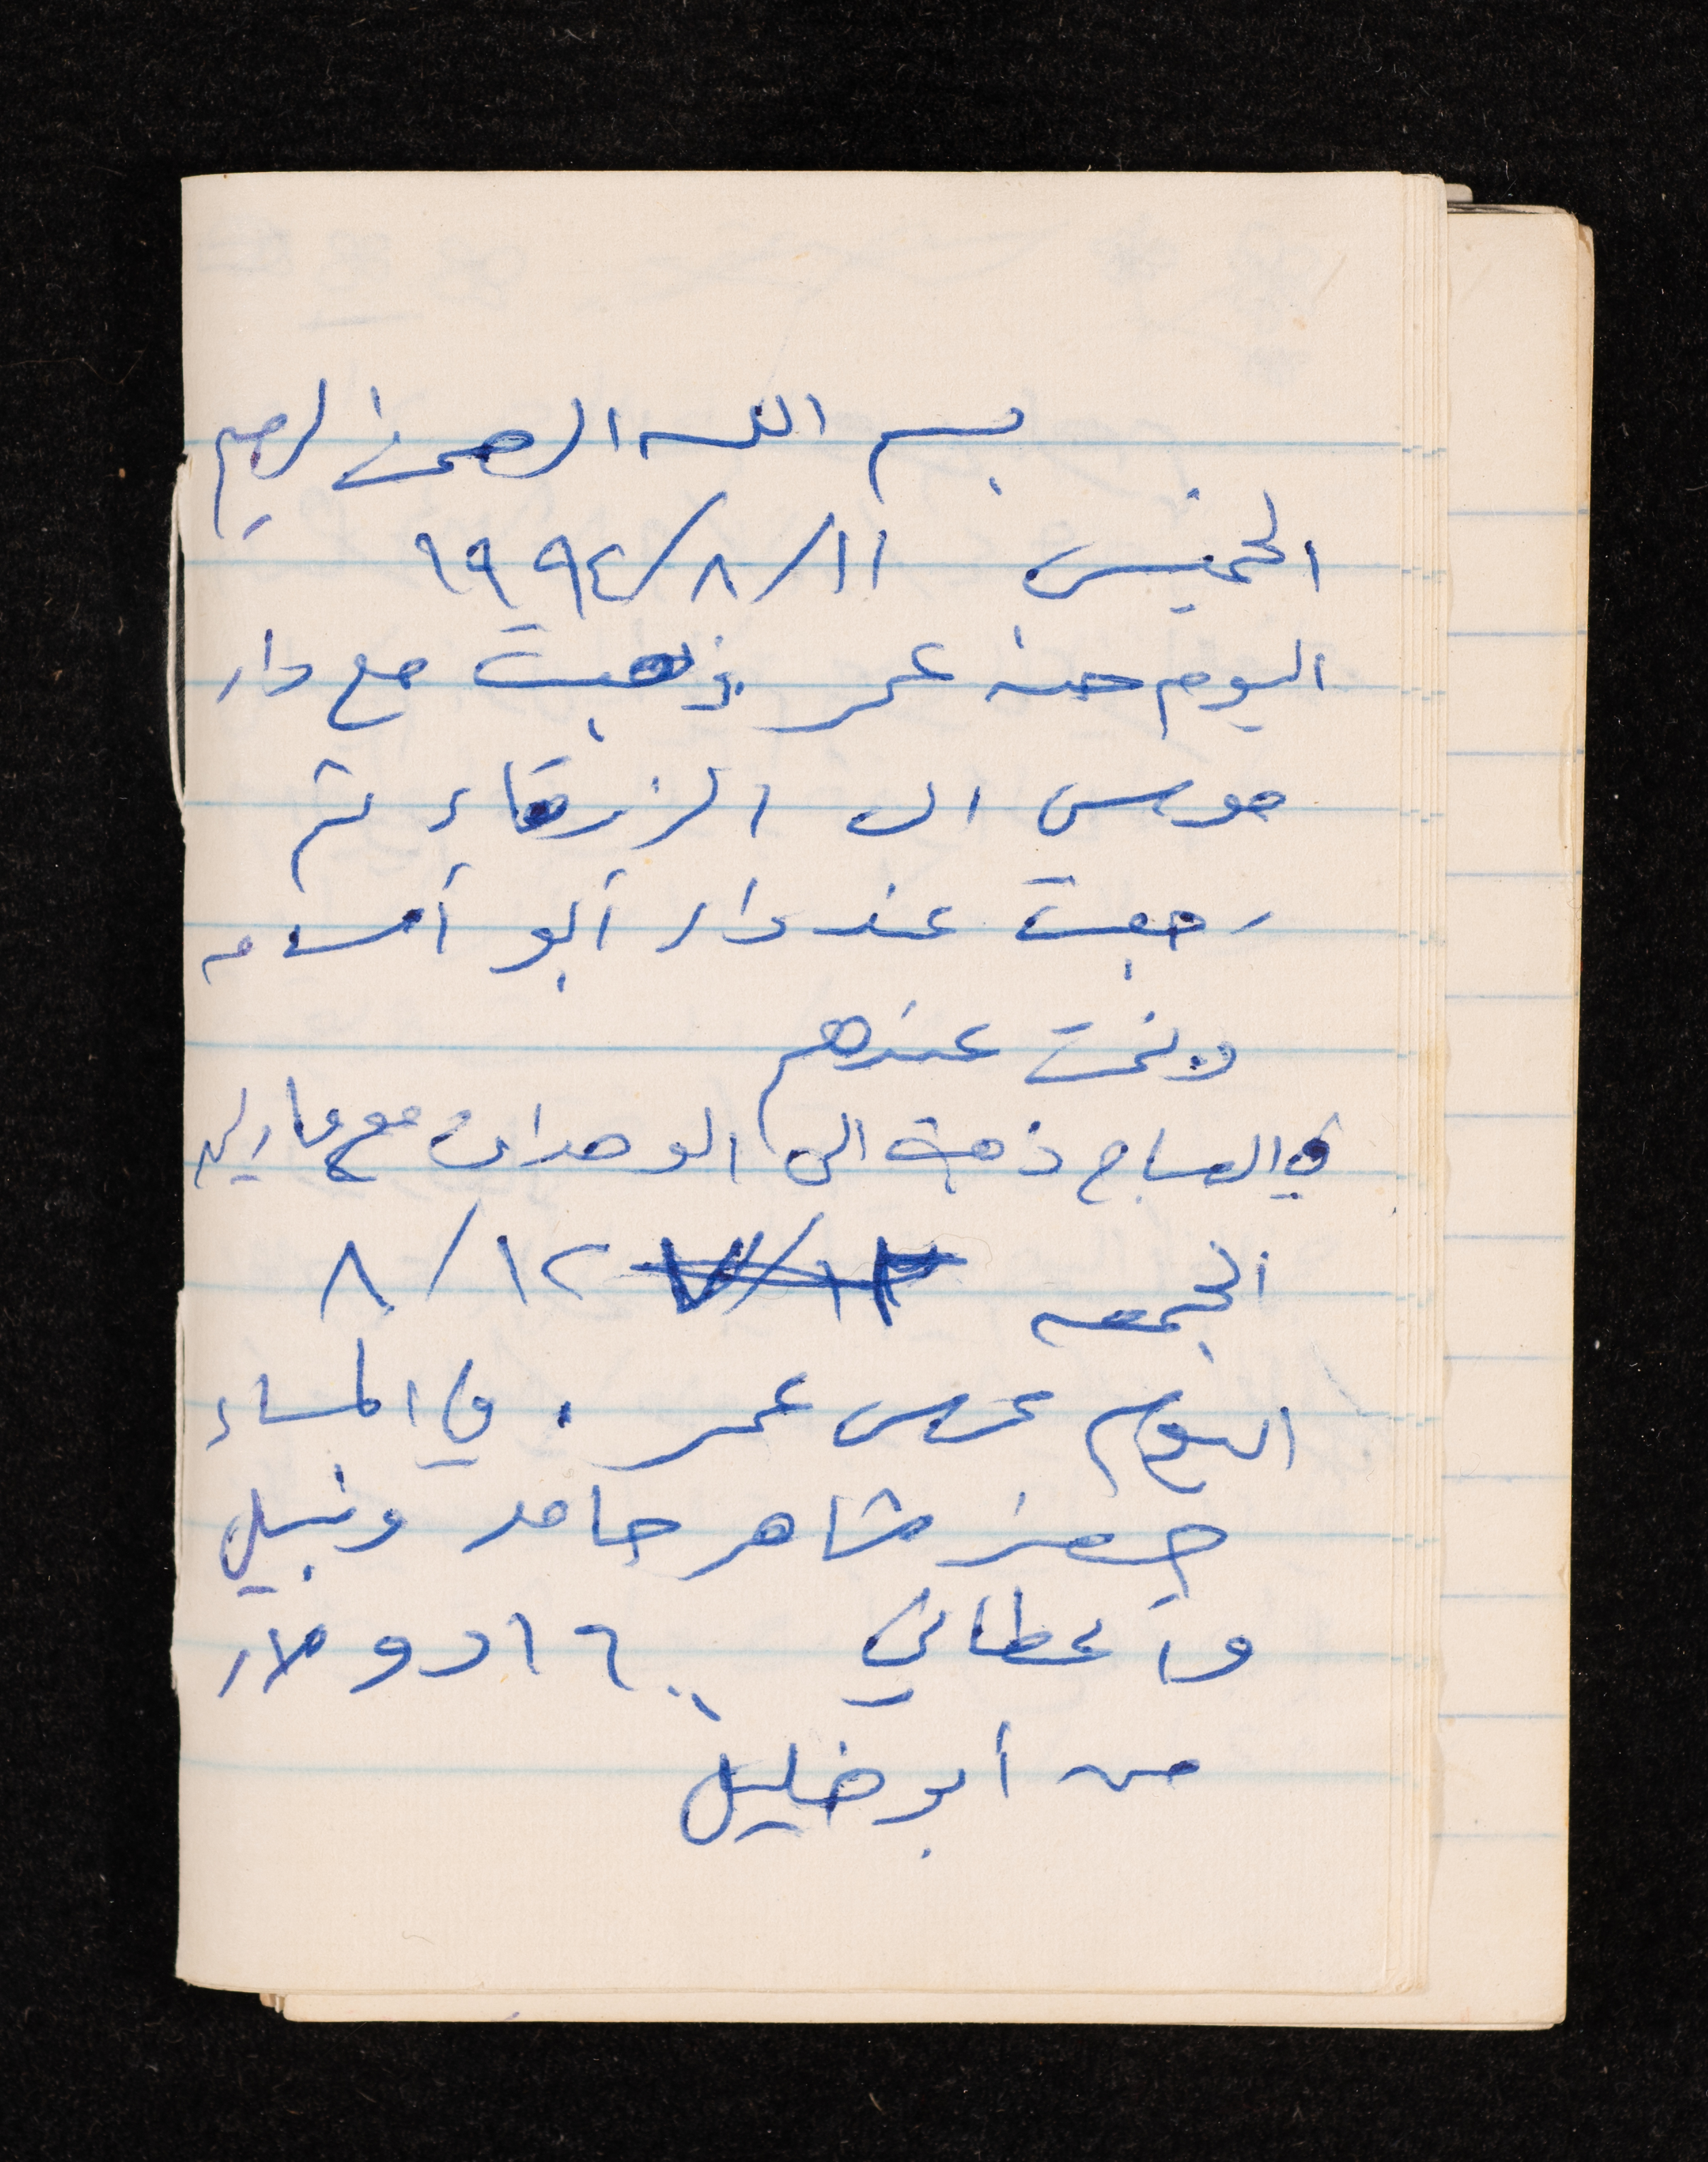 بسم الله الرحمن الرحيم
الخميس ١١/٨/١٩٩٤
اليوم حنه عمر ذهبت مع دار
موسى الى الزرقاء ثم
رجعت عند دار أبو أسامه
ونمت عندهم
في الصباح ذهبت الى الوحدات مع
الجمعه ١٢/٨
اليوم عرس عمر . في المساء
حضر شاهر حامد ونبيل
وأعطاني ١٦٠٠ دولار
من أبو خليل